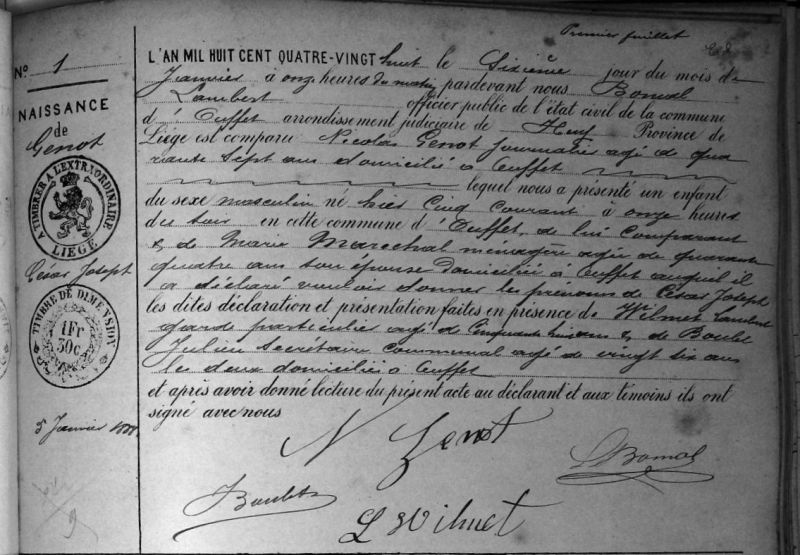 Premier feuillet
N° 1
NAISSANCE
de
Genot
A TIMBRER A L'EXTRAORDINAIRE
LIEGE
César Joseph
TIMBRE DE DIMENSION
1Fr
30c
5 Janvier
L'AN MIL HUIT CENT QUATRE-VINGT huit le Sixième jour du mois de
Janvier à onze heures du matin pardevant nous Bomal
Lambert officier public de l'état civil de la commune
d'Ouffet arrondissement judiciaire de Huy Province de
Liége est comparu Nicolas Genot journalier agé de qua
rante sept ans domicilié à Ouffet
lequel nous a présenté un enfant
du sexe masculin né hier Cinq courant à onze heures
du soir en cette commune d'Ouffet, de lui comparant
& de Marie Marechal ménagère agée de quarante
quatre ans son épouse domiciliée à Ouffet auquel il
a déclaré vouloir donner les prénoms de César Joseph
les dites déclaration et présentation faites en présence de Wilmet Lambert
garde particulier agé de Cinquante ans & de Boulet
Julien Secrétaire communal agé de vingt six ans
les deux domiciliés à Ouffet
et après avoir donné lecture du présent acte au déclarant et aux témoins ils ont
signé avec nous
N Genot
L Bomal
J Boulet
L Wilmet